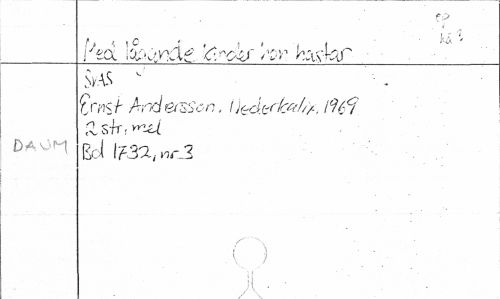 ep
Med lågande kinder hon hastar
SvAS
Ernst Andersson, Nederkalix, 1969
2 str, mel
DAUM
Bd 1732, nr 3